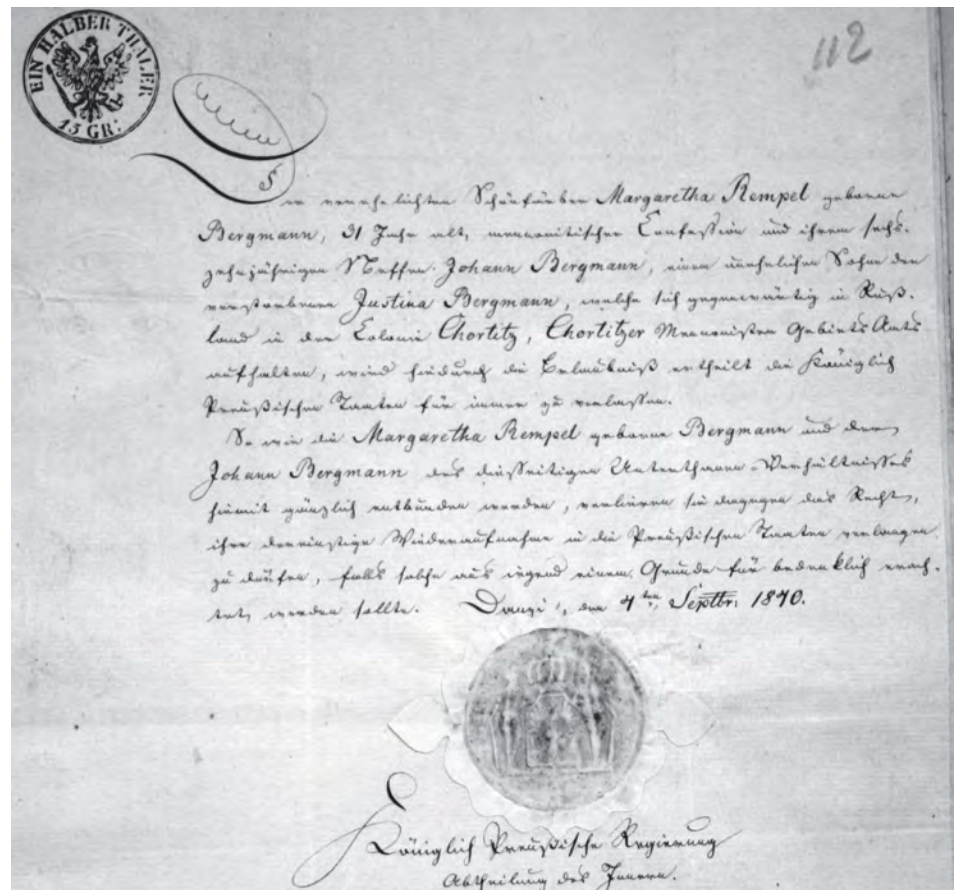 EIN HALBER THALER
15 GR:
112
Der verehelichten Schönfärber Margaretha Rempel geborne
Bergmann, 31 Jahr alt, mennonitischer Confession und ihrem sechs-
zehnjährigen Neffen Johann Bergmann, einen unehelichen Sohn der
verstorbenen Justina Bergmann, welche sich gegenwärtig in Ruß-
land in der Colonie Chortitz, Chortitzer Mennonisten Gebiets Amts
aufhalten, wird hiedurch die Erlaubniß ertheilt die Königlich
Preußischen Staaten für immer zu verlassen.
So wie die Margaretha Rempel geborne Bergmann und der
Johann Bergmann des diesseitigen Unterthanen-Verhältnisses
hiemit gänzlich entbunden werden, verlieren sie dagegen das Recht,
ihre dereinstige Wiederaufnahme in die Preußischen Staaten verlangen
zu dürfen, falls solche aus irgend einem Grunde für bedenklich erach-
tet werden sollte. den 4ten Septbr: 1840.
Königlich Preußische Regierung
Abtheilung des Innern.